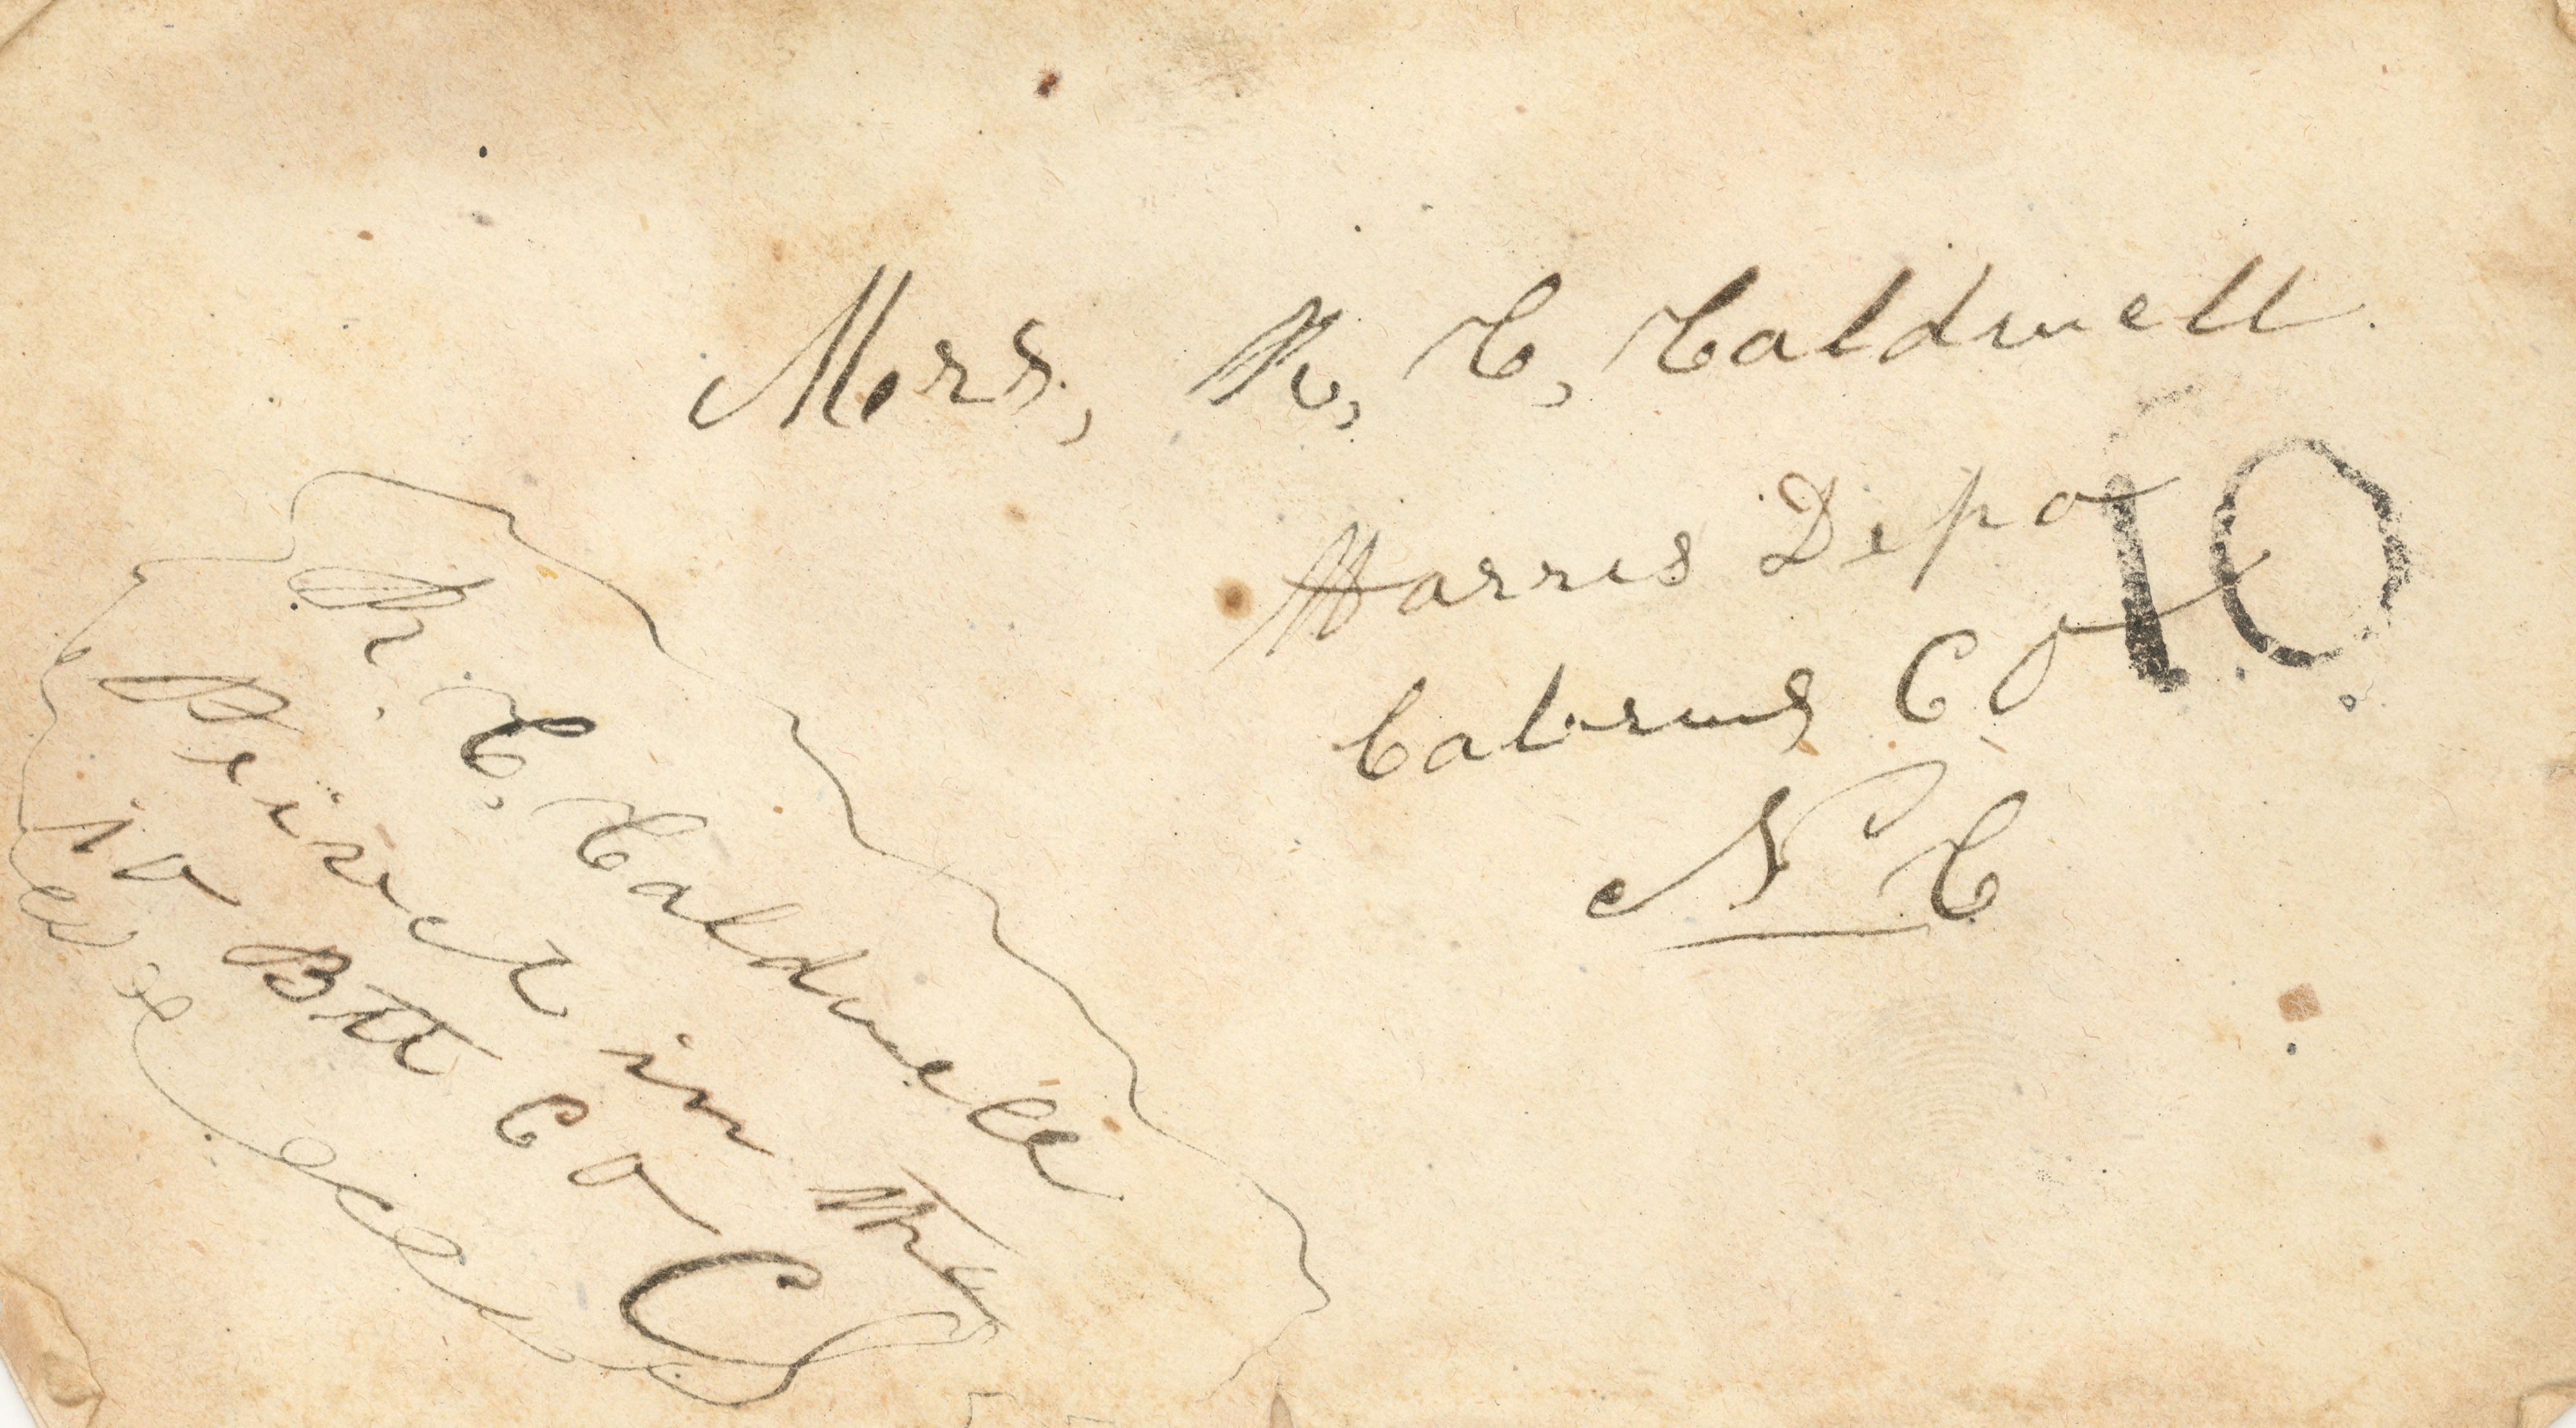 Mers, M, C, Caldwell
Harris Depo
Cabarrus Co
N C
10
M. C. Caldwell
Private in the
10 Btt Co
C